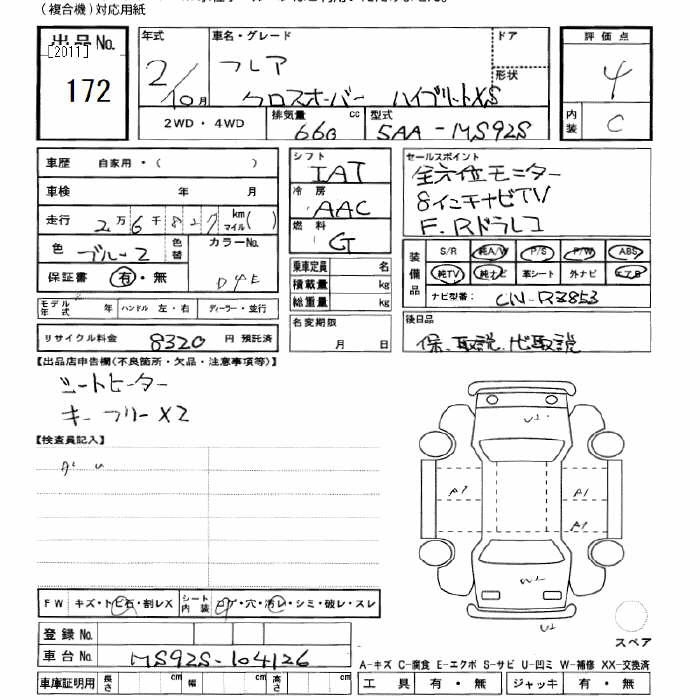 (複合機)対応用紙
出品No. 年式 車名・グレード ドア 評価点
[2011] フレア 形状 4
172 2/10月 クロスオーバー ハイブリットXS
2WD・4WD 排気量 660 cc 型式 5AA-MS92S 内装 C
車歴 自家用・( ) シフト IAT セールスポイント
車検 年 月 冷房 AAC 全方位モニター
走行 2万6千827 km マイル( ) 燃料 G 8インチナビTV
F.Rドラレコ
色 ブルー2 色替 カラーNo. 装備品 S/R 純A/W P/S P/W ABS
保証書 有・無 乗車定員 名 純TV 純ナビ 革シート 外ナビ エアB
積載量 kg ナビ型番:
モデル年式 年 ハンドル 左・右 ディーラー・並行 総重量 kg CN-RZ853
リサイクル料金 8320 円 預託済 名変期限 月 日 後日品
保.取説.ナビ取説
【出品店申告欄(不良箇所・欠品・注意事項等)】
シートヒーター
キーフリーX2
【検査員記入】
U1
A1 A1
A1
W1
U1
FW キズ・トビ石・割レX シート内装 コゲ・穴・汚レ・シミ・破レ・スレ
登録No. スペア
車台No. MS92S-104126
A-キズ C-腐食 E-エクボ S-サビ U-凹ミ W-補修 XX-交換済
車庫証明用 長さ cm 幅 cm 高さ cm 工具 有・無 ジャッキ 有・無